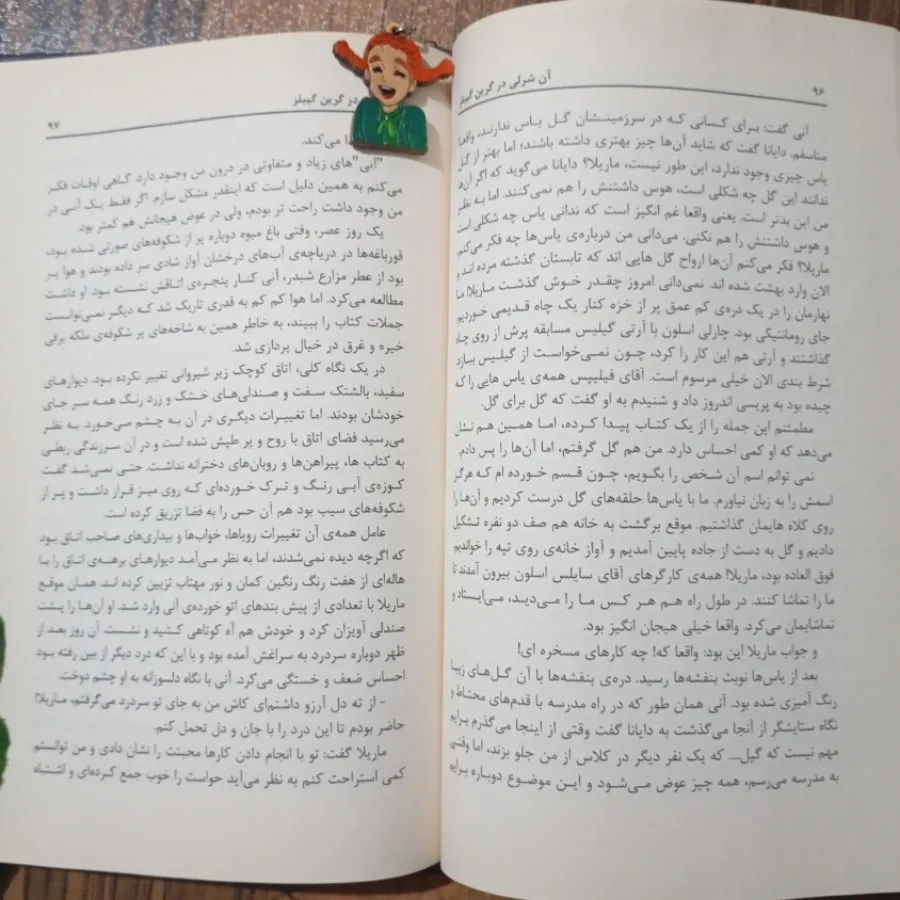 ۹۶
آن شرلی در گرین گیبلز
آنی گفت: برای کسانی که در سرزمینشان گل یاس ندارند، واقعا
متاسفم. دایانا گفت که شاید آن‌ها چیز بهتری داشته باشند؛ اما بهتر از گل
یاس چیزی وجود ندارد، این طور نیست، ماریلا؟ دایانا می‌گوید که اگر آن‌ها
ندانند این گل چه شکلی است، هوس داشتنش را هم نمی‌کنند. اما به نظر
من این بدتر است. یعنی واقعا غم انگیز است که ندانی یاس چه شکلی است
و هوس داشتنش را هم نکنی. می‌دانی من درباره‌ی یاس‌ها چه فکر می‌کنم،
ماریلا؟ فکر می‌کنم آن‌ها ارواح گل هایی اند که تابستان گذشته مرده اند و
الان وارد بهشت شده اند. نمی‌دانی امروز چقدر خوش گذشت ماریلا ما
نهارمان را در یک دره‌ی کم عمق پر از خزه کنار یک چاه قدیمی خوردیم
جای رومانتیکی بود. چارلی اسلون با آرتی گیلیس مسابقه پرش از روی چاه
گذاشتند و آرتی هم این کار را کرد، چون نمی‌خواست از گیلیس ببازد
شرط بندی الان خیلی مرسوم است. آقای فیلیپس همه‌ی یاس هایی را که
چیده بود به پریسی اندروز داد و شنیدم به او گفت که گل برای گل.
مطمئنم این جمله را از یک کتاب پیدا کرده، اما همین هم نشان
می‌دهد که او کمی احساس دارد. من هم گل گرفتم، اما آن‌ها را پس دادم.
نمی توانم اسم آن شخص را بگویم، چون قسم خورده ام که هرگز
اسمش را به زبان نیاورم. ما با یاس‌ها حلقه‌های گل درست کردیم و آن‌ها را
روی کلاه هایمان گذاشتیم. موقع برگشت به خانه هم صف دو نفره تشکیل
دادیم و گل به دست از جاده پایین آمدیم و آواز خانه‌ی روی تپه را خواندیم
فوق العاده بود، ماریلا! همه‌ی کارگرهای آقای سایلس اسلون بیرون آمدند تا
ما را تماشا کنند. در طول راه هم هر کس ما را می‌دید، می‌ایستاد و
تماشایمان می‌کرد. واقعا خیلی هیجان انگیز بود.
و جواب ماریلا این بود: واقعا که! چه کارهای مسخره ای!
بعد از یاس‌ها نوبت بنفشه‌ها رسید. دره‌ی بنفشه‌ها با آن گل‌های زیبا
رنگ آمیزی شده بود. آنی همان طور که در راه مدرسه با قدم‌های محتاط و
نگاه ستایشگر از آنجا می‌گذشت به دایانا گفت وقتی از اینجا می‌گذرم برایم
مهم نیست که گیل... که یک نفر دیگر در کلاس از من جلو بزند، اما وقتی
به مدرسه می‌رسم، همه چیز عوض می‌شود و این موضوع دوباره برایم
در گرین گیبلز
۹۷
می‌کند.
"آنی"های زیاد و متفاوتی در درون من وجود دارد. گاهی اوقات فکر
می‌کنم به همین دلیل است که اینقدر مشکل سازم. اگر فقط یک آنی در
من وجود داشت راحت تر بودم، ولی در عوض هیجانش هم کمتر بود.
یک روز عصر، وقتی باغ میوه دوباره پر از شکوفه‌های صورتی شده بود،
قورباغه‌ها در دریاچه‌ی آب‌های درخشان آواز شادی سر داده بودند و هوا پر
بود از عطر مزارع شبدر، آنی کنار پنجره‌ی اتاقش نشسته بود. او داشت
مطالعه می‌کرد. اما هوا کم کم به قدری تاریک شد که دیگر نمی‌توانست
جملات کتاب را ببیند، به خاطر همین به شاخه‌های پر شکوفه‌ی ملکه برفی
خیره و غرق در خیال پردازی شد.
در یک نگاه کلی، اتاق کوچک زیر شیروانی تغییر نکرده بود. دیوارهای
سفید، بالشتک سفت و صندلی‌های خشک و زرد رنگ همه سر جای
خودشان بودند. اما تغییرات دیگری در آن به چشم می‌خورد. به نظر
می‌رسید فضای اتاق با روح و پر طپش شده است و در آن سرزندگی ربطی
به کتاب ها، پیراهن‌ها و روبان‌های دخترانه نداشت. حتی نمی‌شد گفت
کوزه‌ی آبی رنگ و ترک خورده‌ای که روی میز قرار داشت و پر از
شکوفه‌های سیب بود هم آن حس را به فضا تزریق کرده است.
عامل همه‌ی آن تغییرات رویاها، خواب‌ها و بیداری‌های صاحب اتاق بود
که اگرچه دیده نمی‌شدند، اما به نظر می‌آمد دیوارهای برهنه‌ی اتاق را با
هاله‌ای از هفت رنگ رنگین کمان و نور مهتاب تزیین کرده اند. همان موقع
ماریلا با تعدادی از پیش بندهای اتو خورده‌ی آنی وارد شد. او آن‌ها را پشت
صندلی آویزان کرد و خودش هم آه کوتاهی کشید و نشست. آن روز بعد از
ظهر دوباره سردرد به سراغش آمده بود و با این که درد دیگر از بین رفته بود
احساس ضعف و خستگی می‌کرد. آنی با نگاه دلسوزانه به او چشم دوخت.
- از ته دل آرزو داشتم‌ای کاش من به جای تو سردرد می‌گرفتم، ماریلا!
حاضر بودم تا این درد را با جان و دل تحمل کنم.
ماریلا گفت: تو با انجام دادن کارها محبتت را نشان دادی و من توانستم
کمی استراحت کنم به نظر می‌آید حواست را خوب جمع کرده‌ای و اشتباه